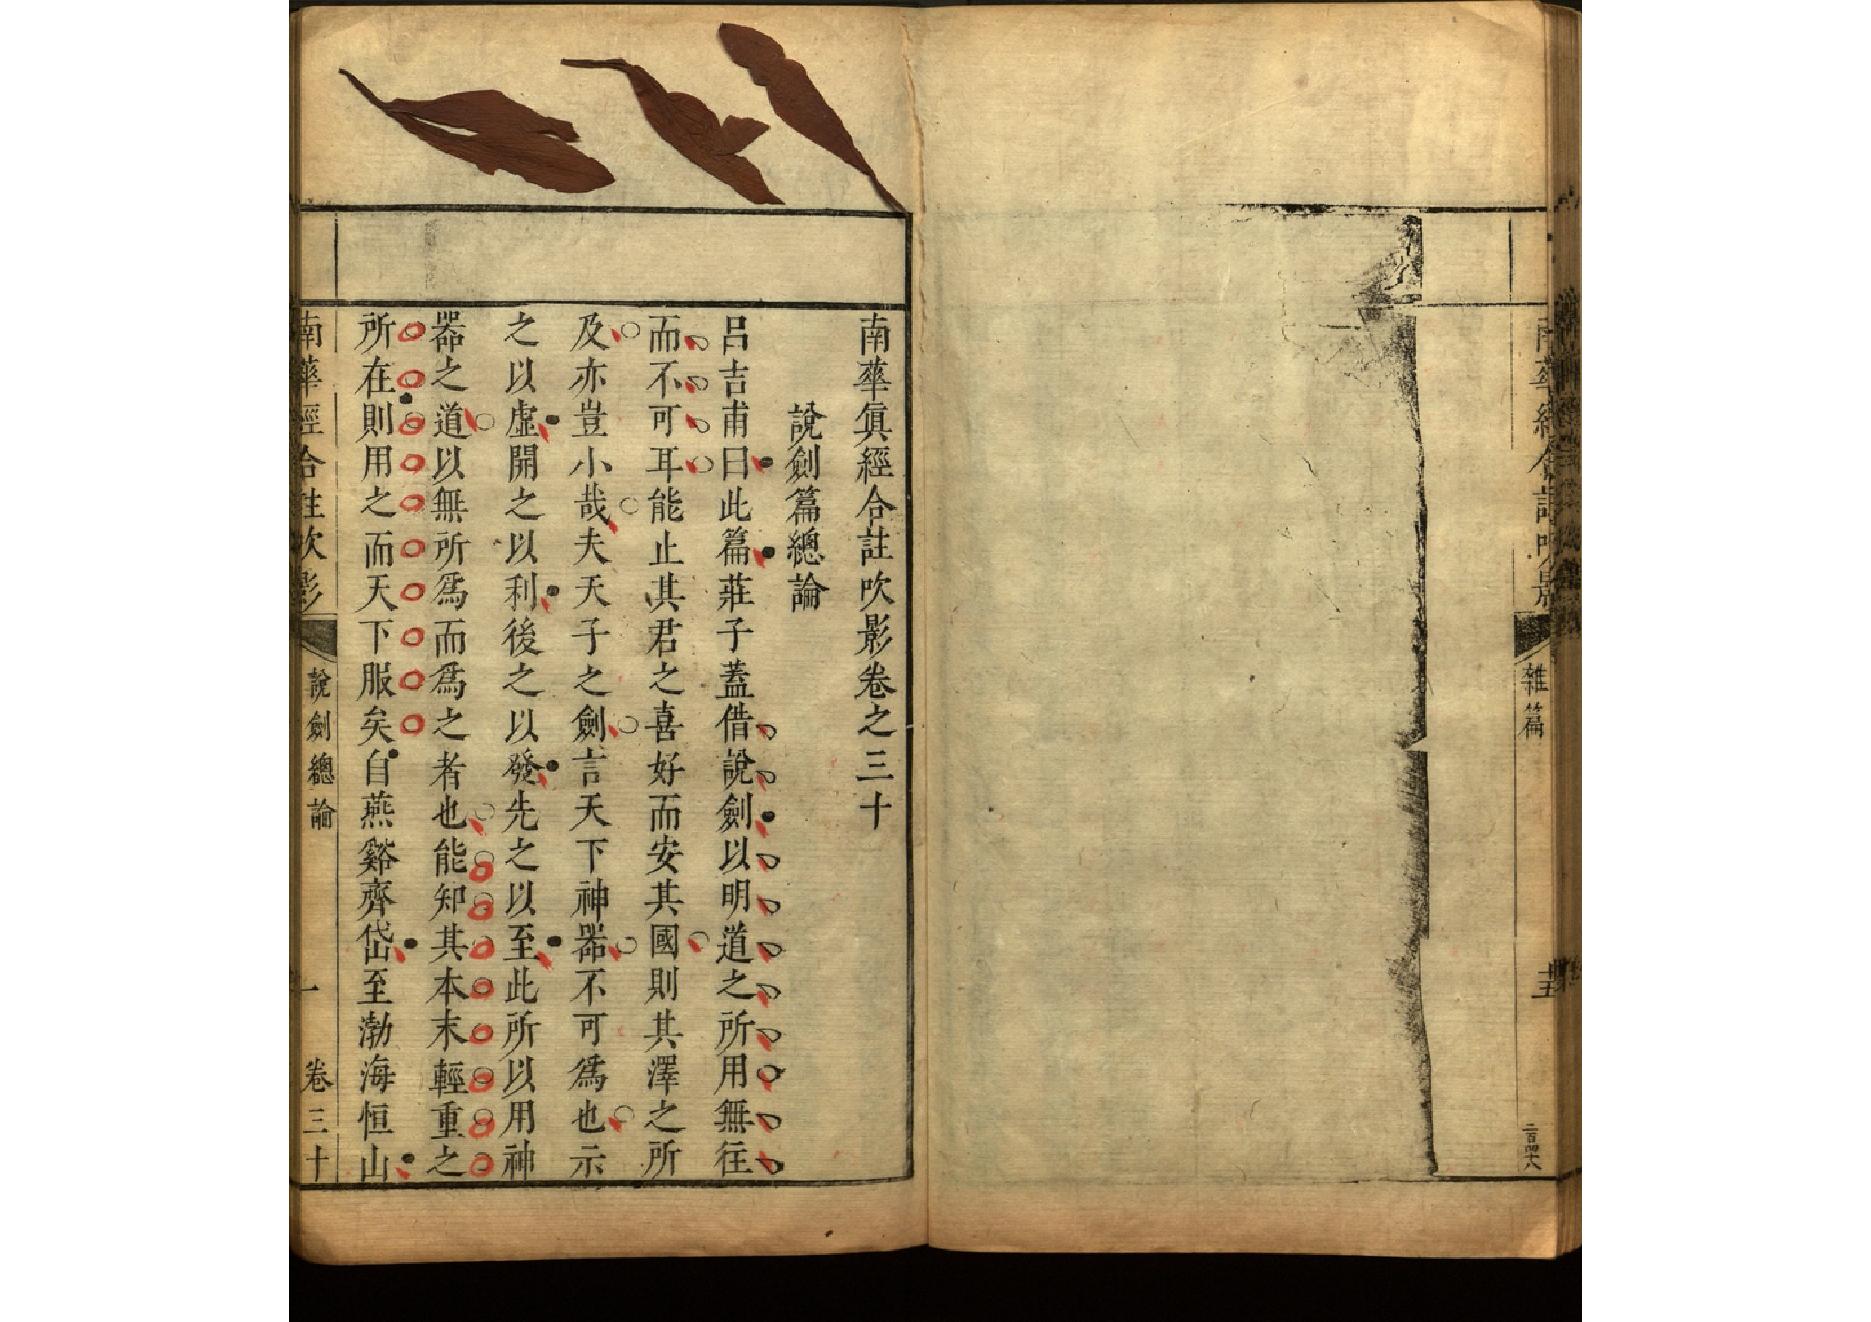 雜篇
二百四六
南華眞經合註吹影卷之三十
說劍篇總論
呂吉甫曰此篇莊子蓋借說劍以明道之所用無往
而不可耳能止其君之喜好而安其國則其澤之所
及亦豈小哉夫天子之劍言天下神器不可爲也示
之以虛開之以利後之以發先之以至此所以用神
器之道以無所爲而爲之者也能知其本末輕重之
所在則用之而天下服矣自燕谿齊岱至渤海恒山
南華經合註吹影
說劍總論
一
卷三十